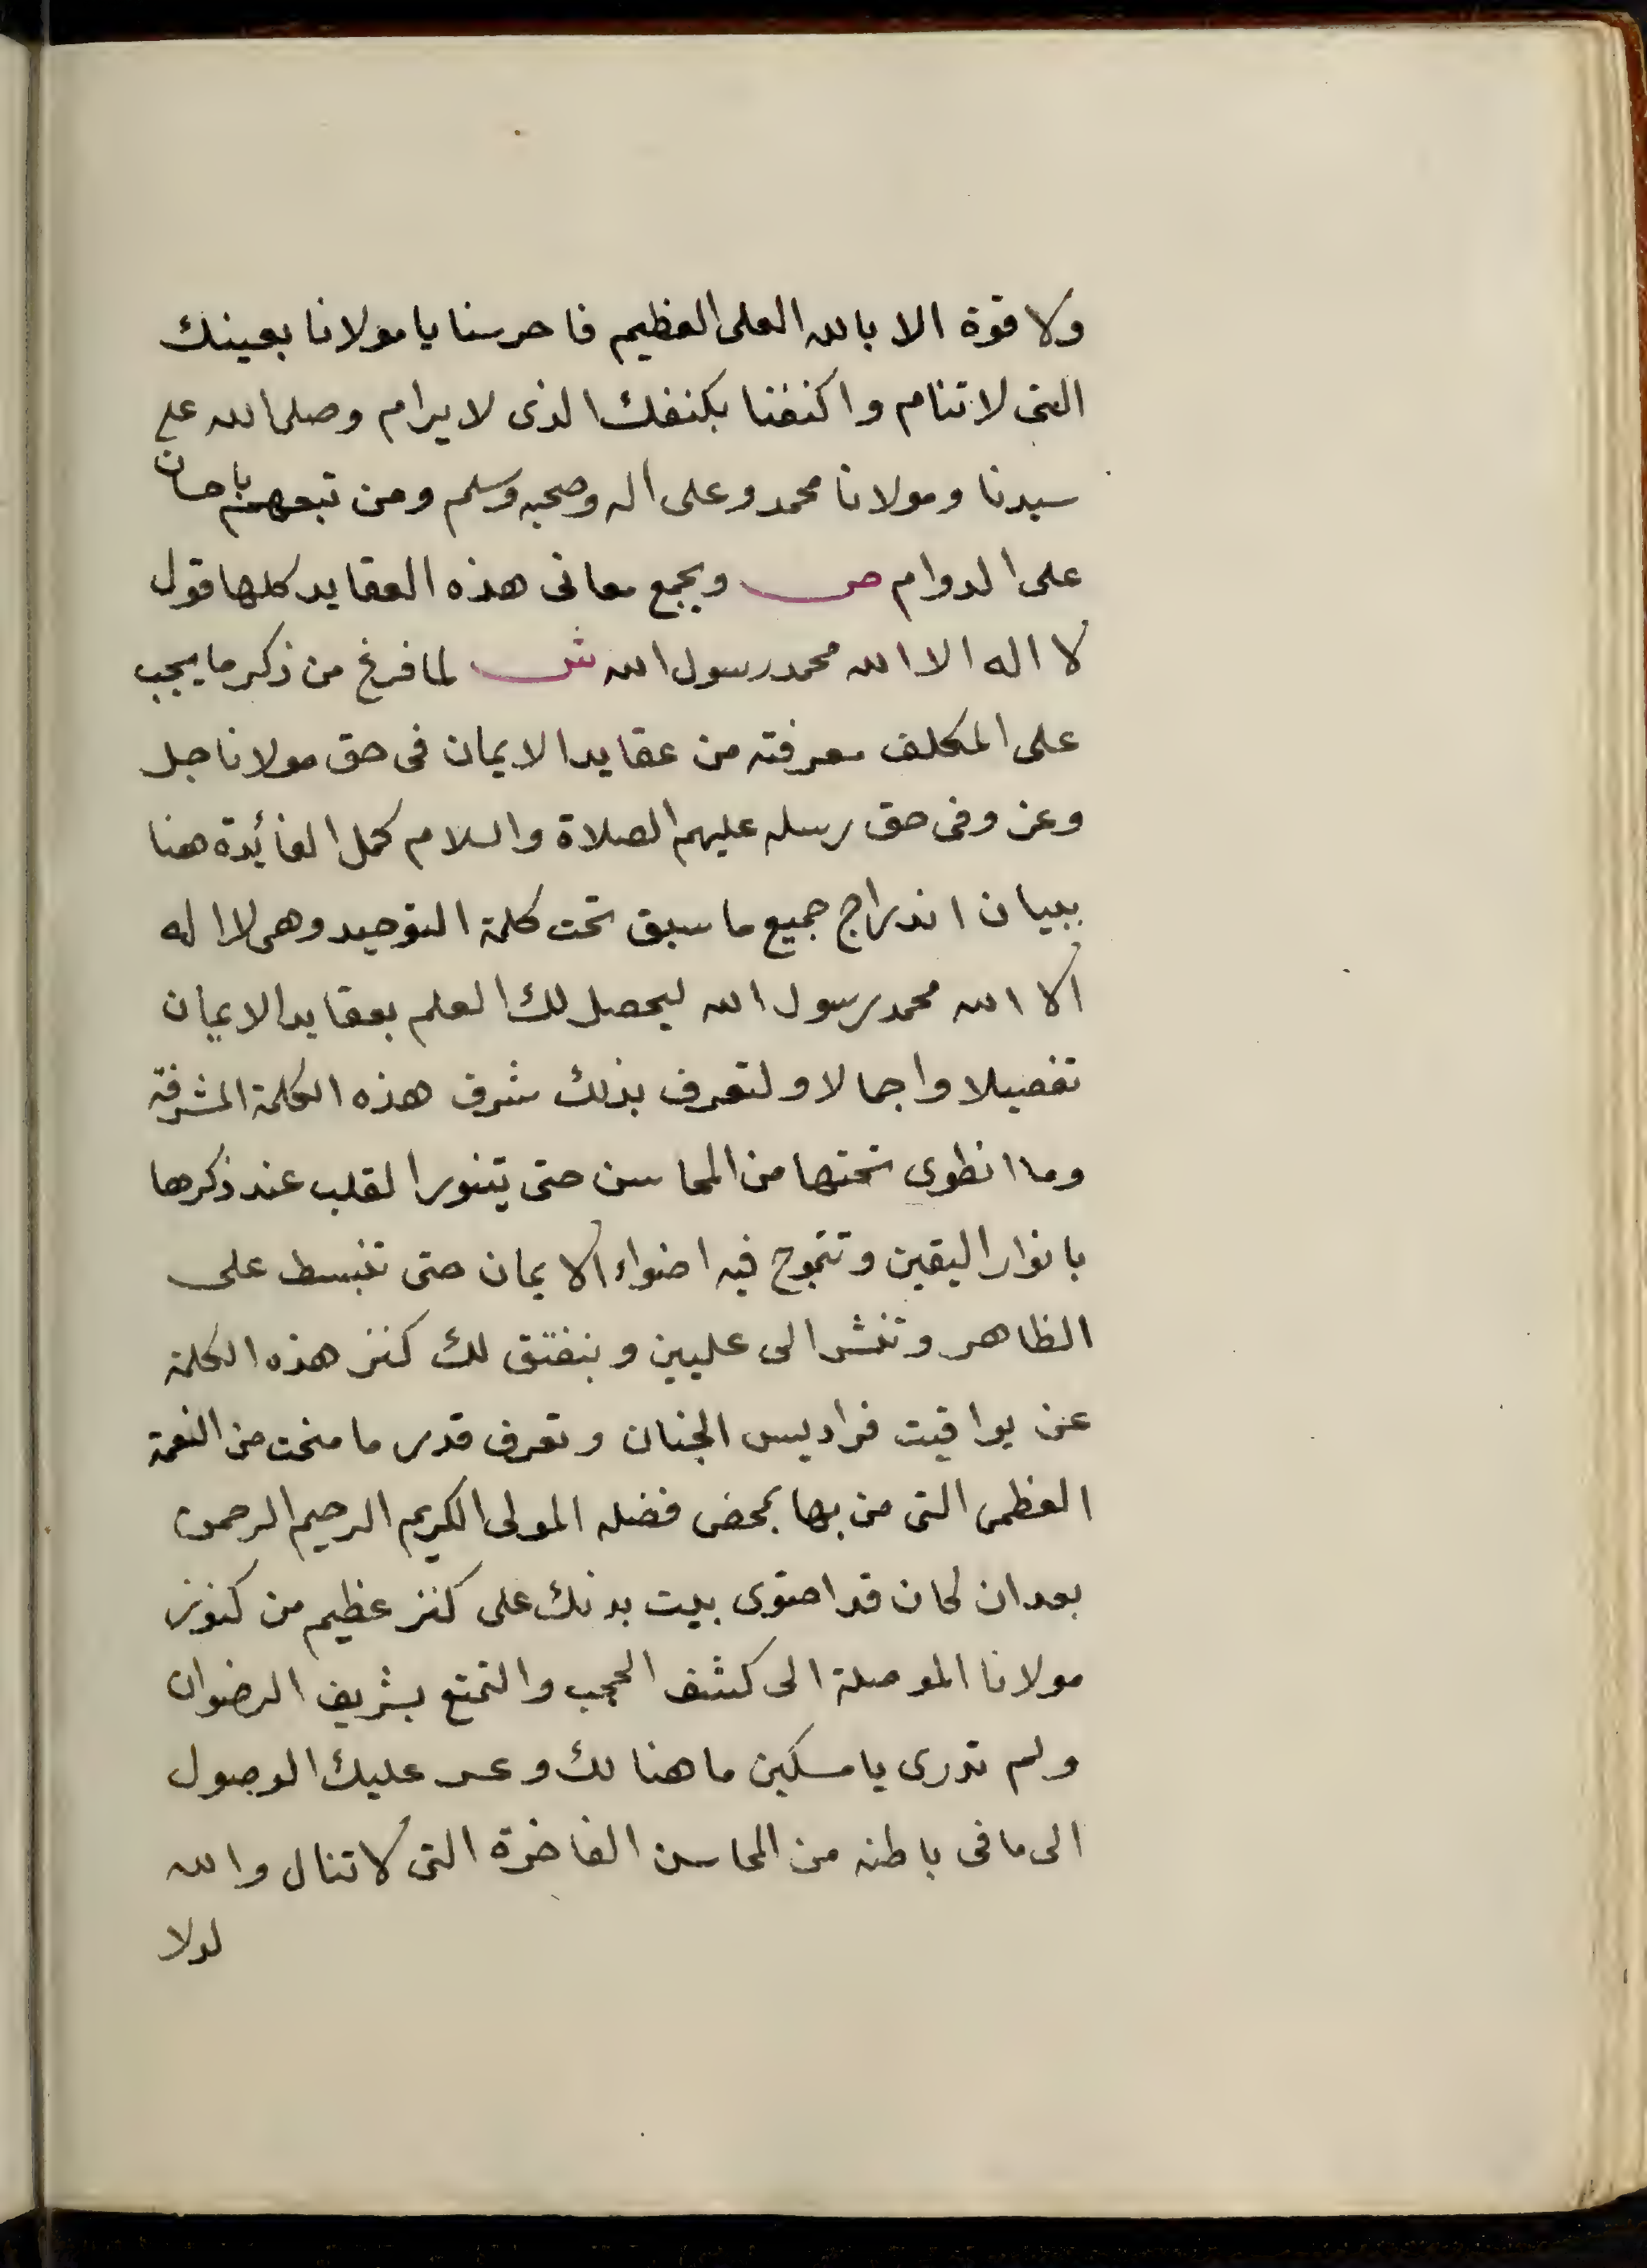 ولا قوة الا بالله العلى العظيم فاحرسنا يا مولانا بعينك
التى لا تنام واكنفنا بكنفك الذى لا يرام وصلى الله على
سيدنا ومولانا محمد وعلى اله وصحبه وسلم ومن تبعهم باحسان
على الدوام ص ويجمع معانى هذه العقايد كلها قول
لا اله الا الله محمد رسول الله ش لما فرغ من ذكر ما يجب
على المكلف معرفته من عقايد الايمان فى حق مولانا جل
وعز وفى حق رسله عليهم الصلاة والسلام كمل الفائدة هنا
ببيان اندراج جميع ما سبق تحت كلمة التوحيد وهى لا اله
الا الله محمد رسول الله ليحصل لك العلم بعقايد الايمان
تفصيلا واجمالا ولتعرف بذلك شرف هذه الكلمة المشرفة
وما انطوى تحتها من المحاسن حتى يتنور القلب عند ذكرها
بانوار اليقين وتتموج فيه اضواء الايمان حتى تنبسط على
الظاهر وتنشر الى عليين وينفتق لك كنز هذه الكلمة
عن يواقيت فراديس الجنان وتعرف قدر ما منحت من النعمة
العظمى التى من بها بمحض فضله المولى الكريم الرحيم الرحمن
بعد ان كان قد احتوى بيت بدنك على كنز عظيم من كنوز
مولانا الموصلة الى كشف الحجب والتمتع بشريف الرضوان
ولم تدرى يا مسكين ما هنالك وعسر عليك الوصول
الى ما فى باطنه من المحاسن الفاخرة التى لا تنال والله
لولا